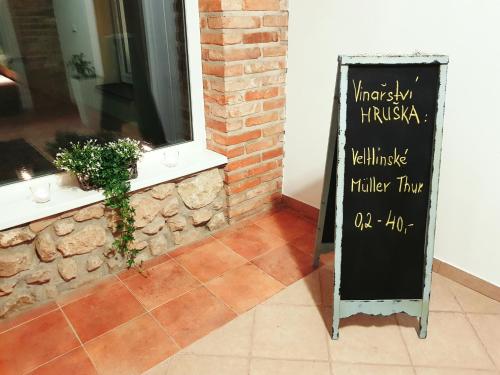 Vinařství
HRUŠKA:
Veltlínské
Müller Thur
0,2 - 40,-